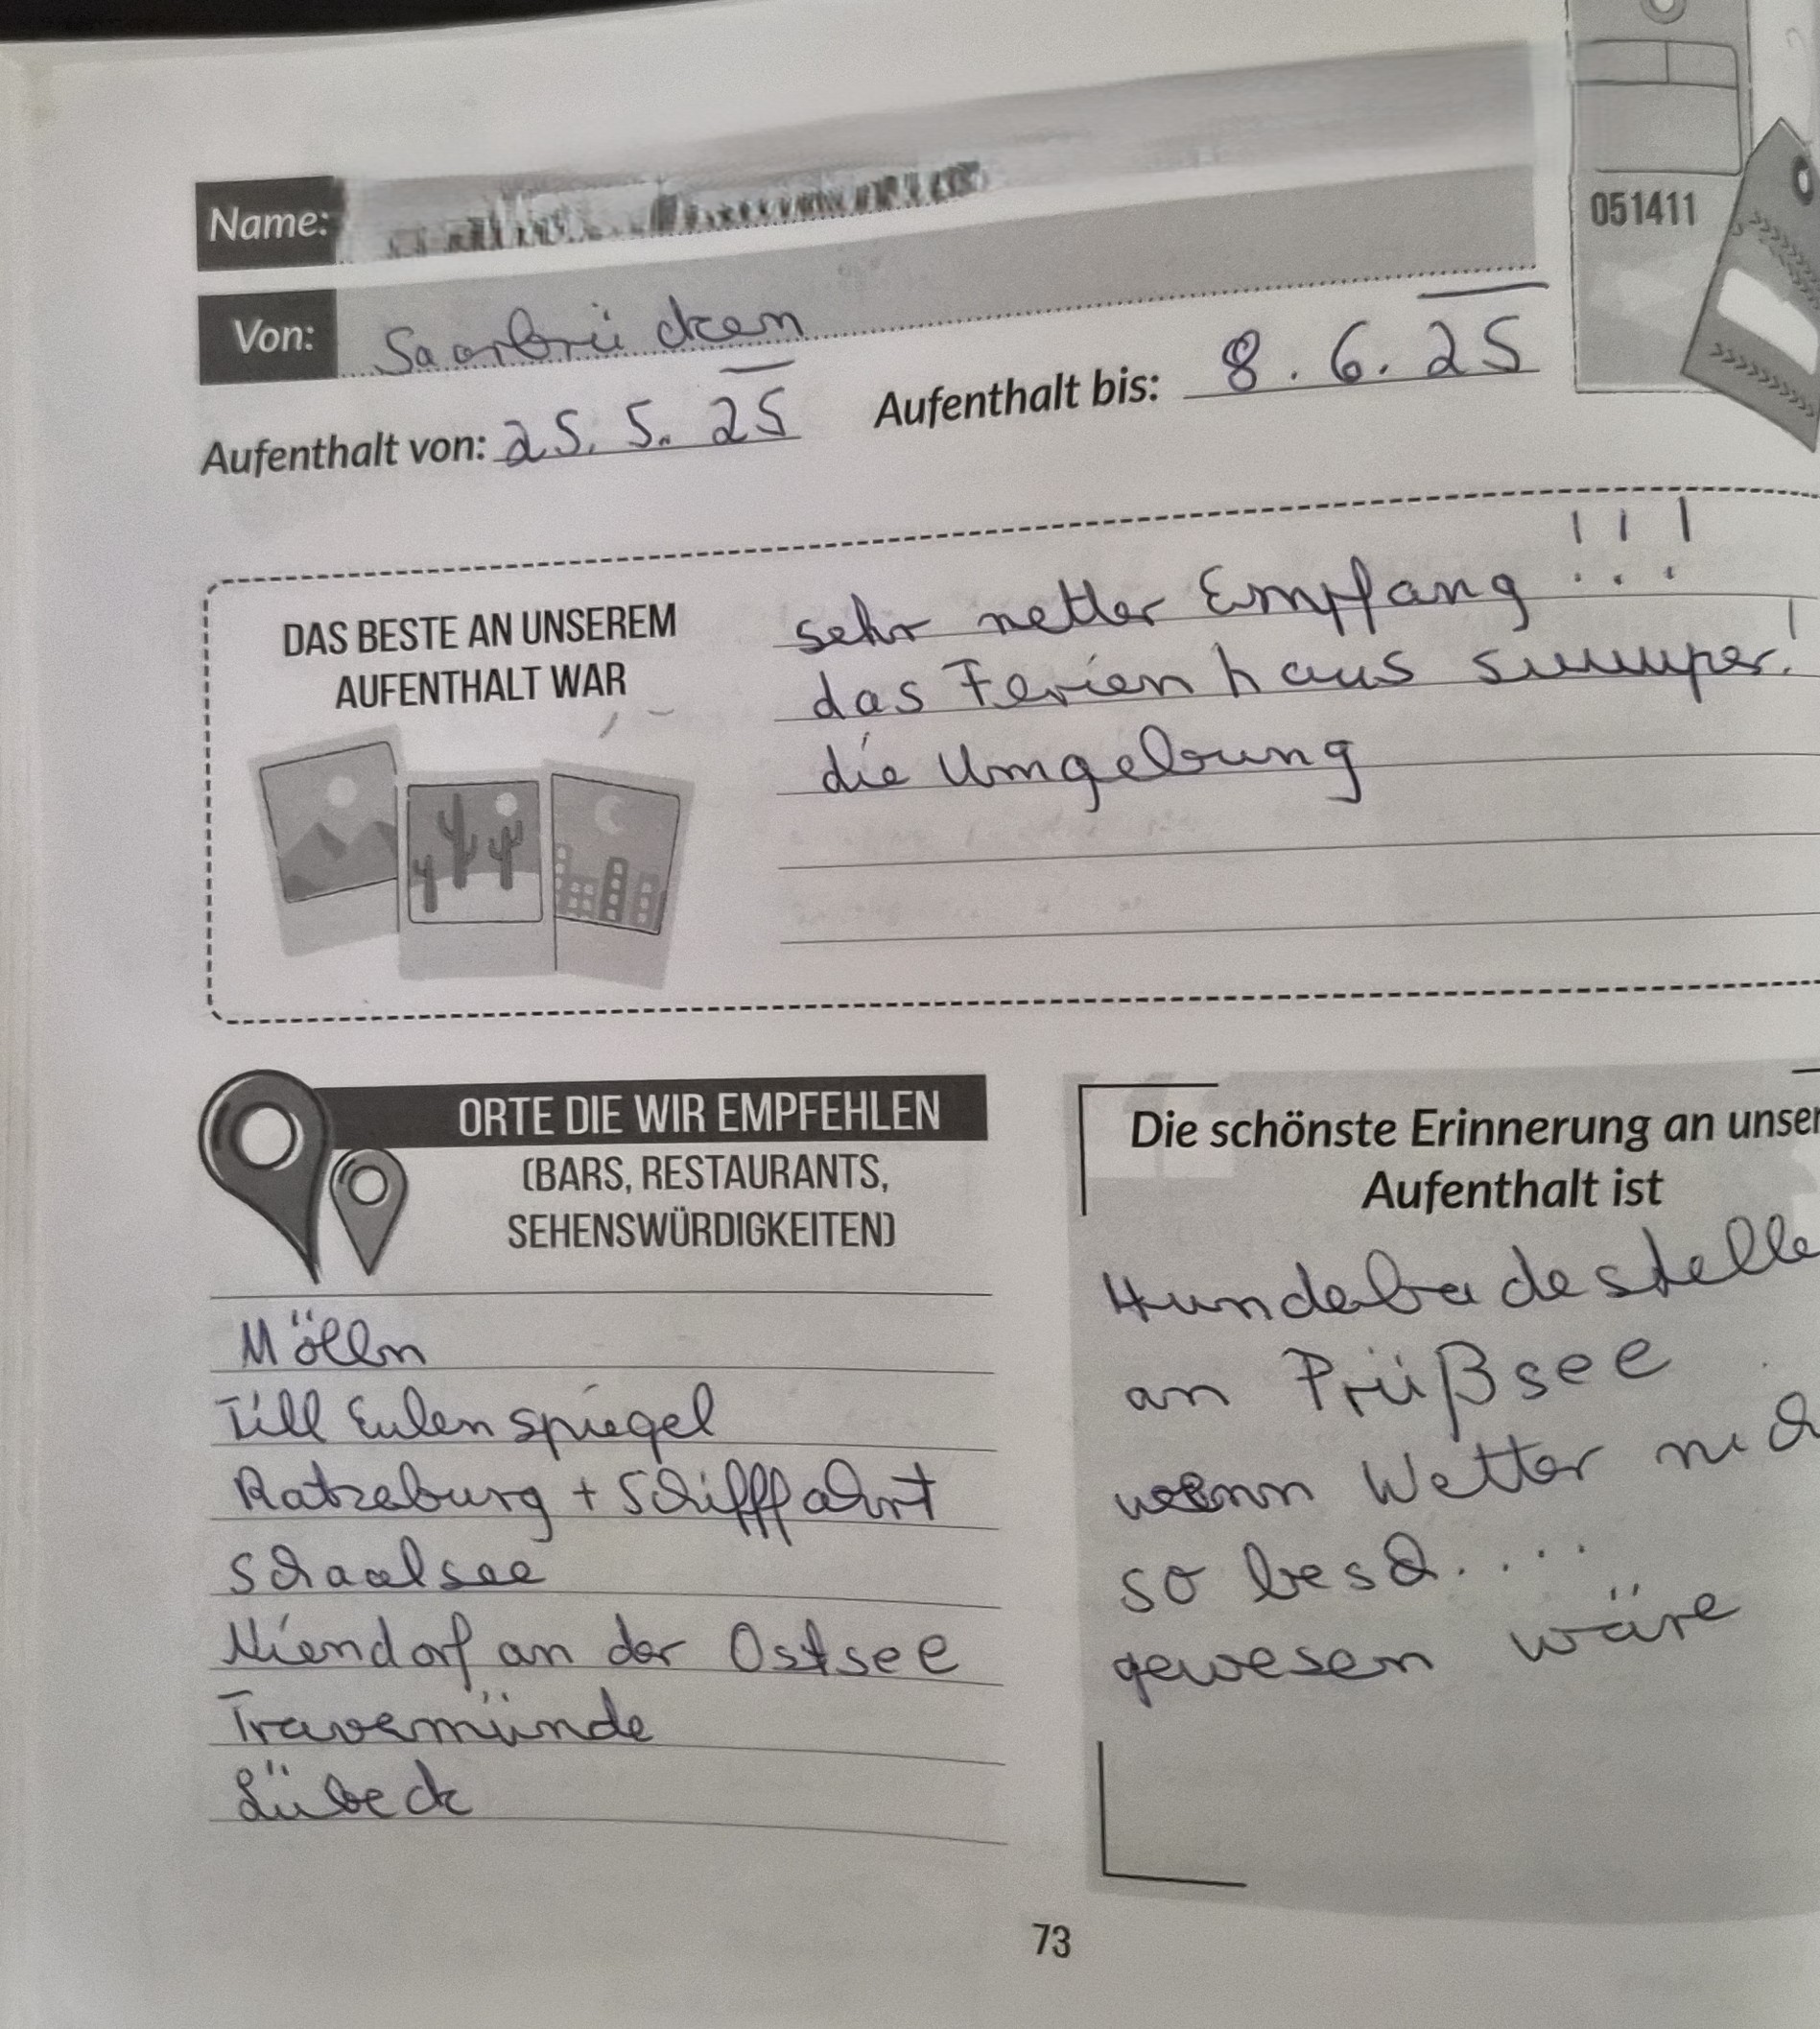 051411
Name:
Von: Saarbrücken
Aufenthalt von: 25. 5. 25 Aufenthalt bis: 8. 6. 25
DAS BESTE AN UNSEREM
AUFENTHALT WAR
sehr netter Empfang !!!
das Ferienhaus suuuper!
die Umgebung
ORTE DIE WIR EMPFEHLEN
(BARS, RESTAURANTS,
SEHENSWÜRDIGKEITEN)
Mölln
Till Eulenspiegel
Ratzeburg + Schifffahrt
Schaalsee
Niendorf an der Ostsee
Travemünde
Lübeck
Die schönste Erinnerung an unser
Aufenthalt ist
Hundebadestelle
an Prüßsee
wenn Wetter nich
so besch.....
gewesen wäre
73